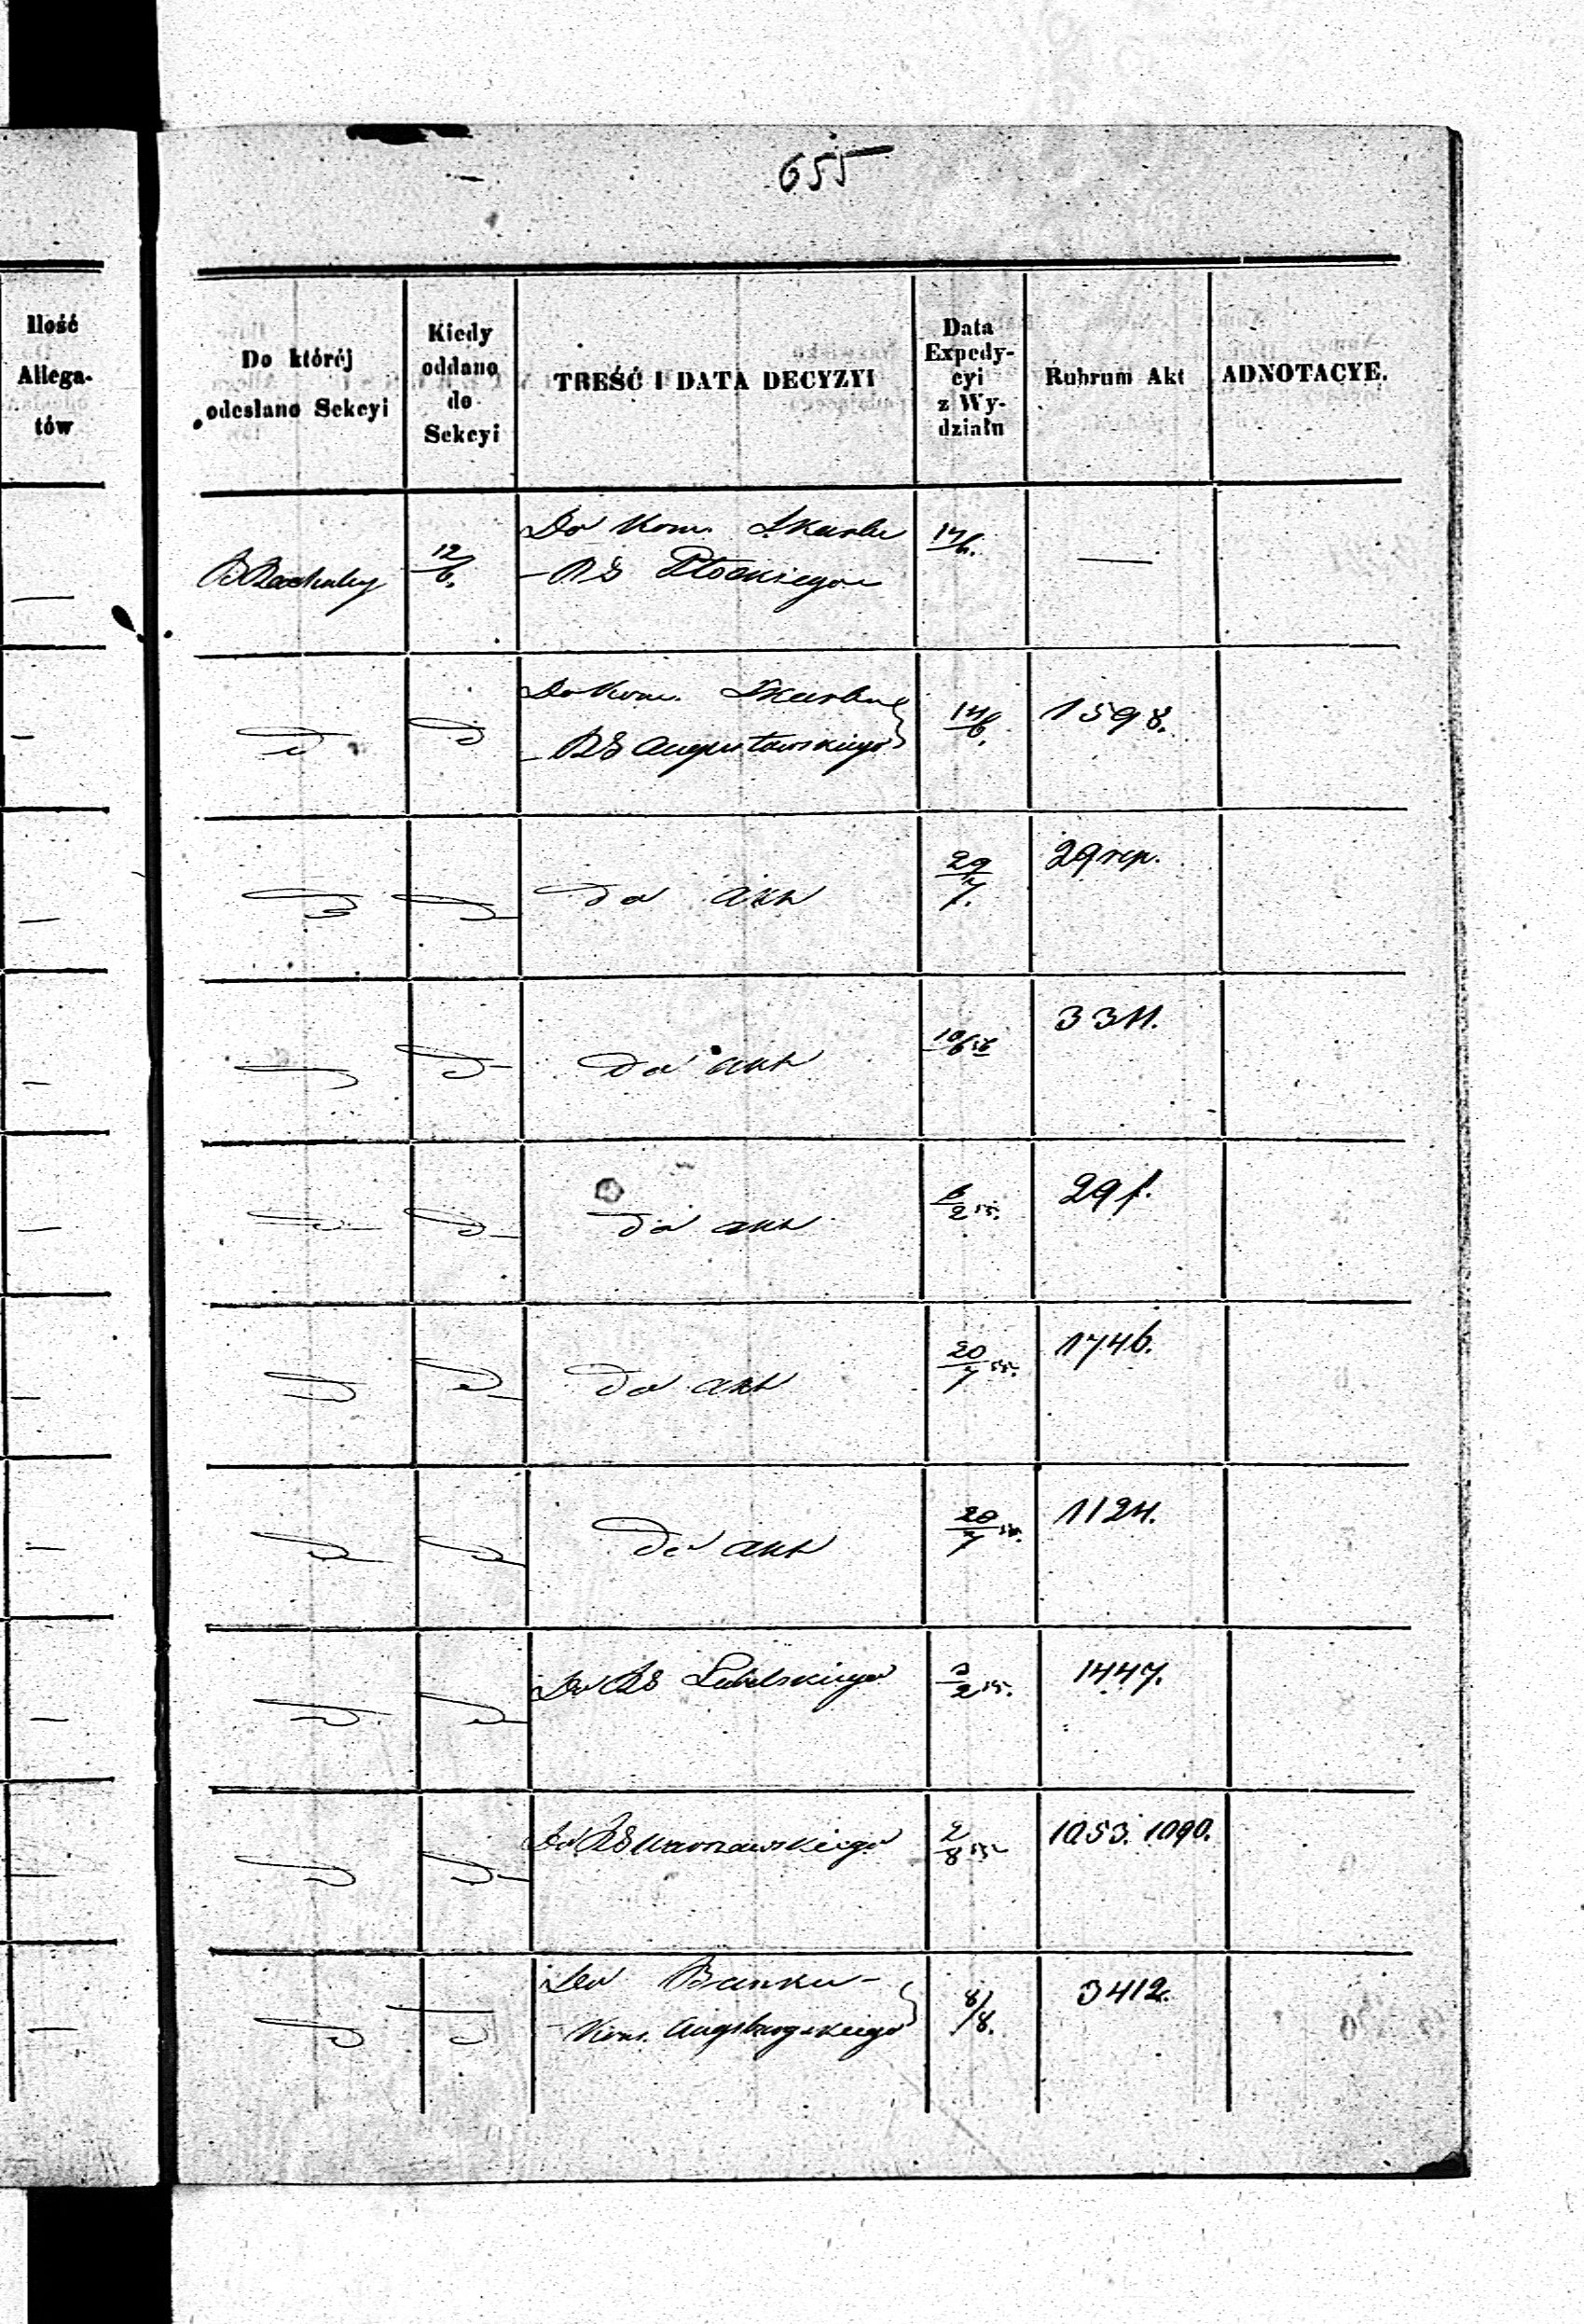 655
Ilość
Allega-
tów
Do któréj
odesłano Sekcyi
Kiedy
oddano
do
Sekcyi
TREŚĆ I DATA DECYZYI
Data
Expedy-
cyi
z Wy-
działu
Rubrum Akt
ADNOTACYE.
12/6. Do Kom. Skarbu 14/6. —
— RG Płockiego
Do Kom. Skarbu 14/6. 1598.
— RG Augustowskiego
do akt 29/7. 29 rep.
do akt 10/6 56 3311.
do akt 6/2 55. 29 f.
do akt 20/7 55. 1746.
do akt 20/7 55. 1124.
Do RG Lubelskiego 3/2 55. 1447.
Do RG Warszawskiego 2/8 55 1053. 1090.
Do Banku — 8/8. 3412.
Kom. Augsburgskiego